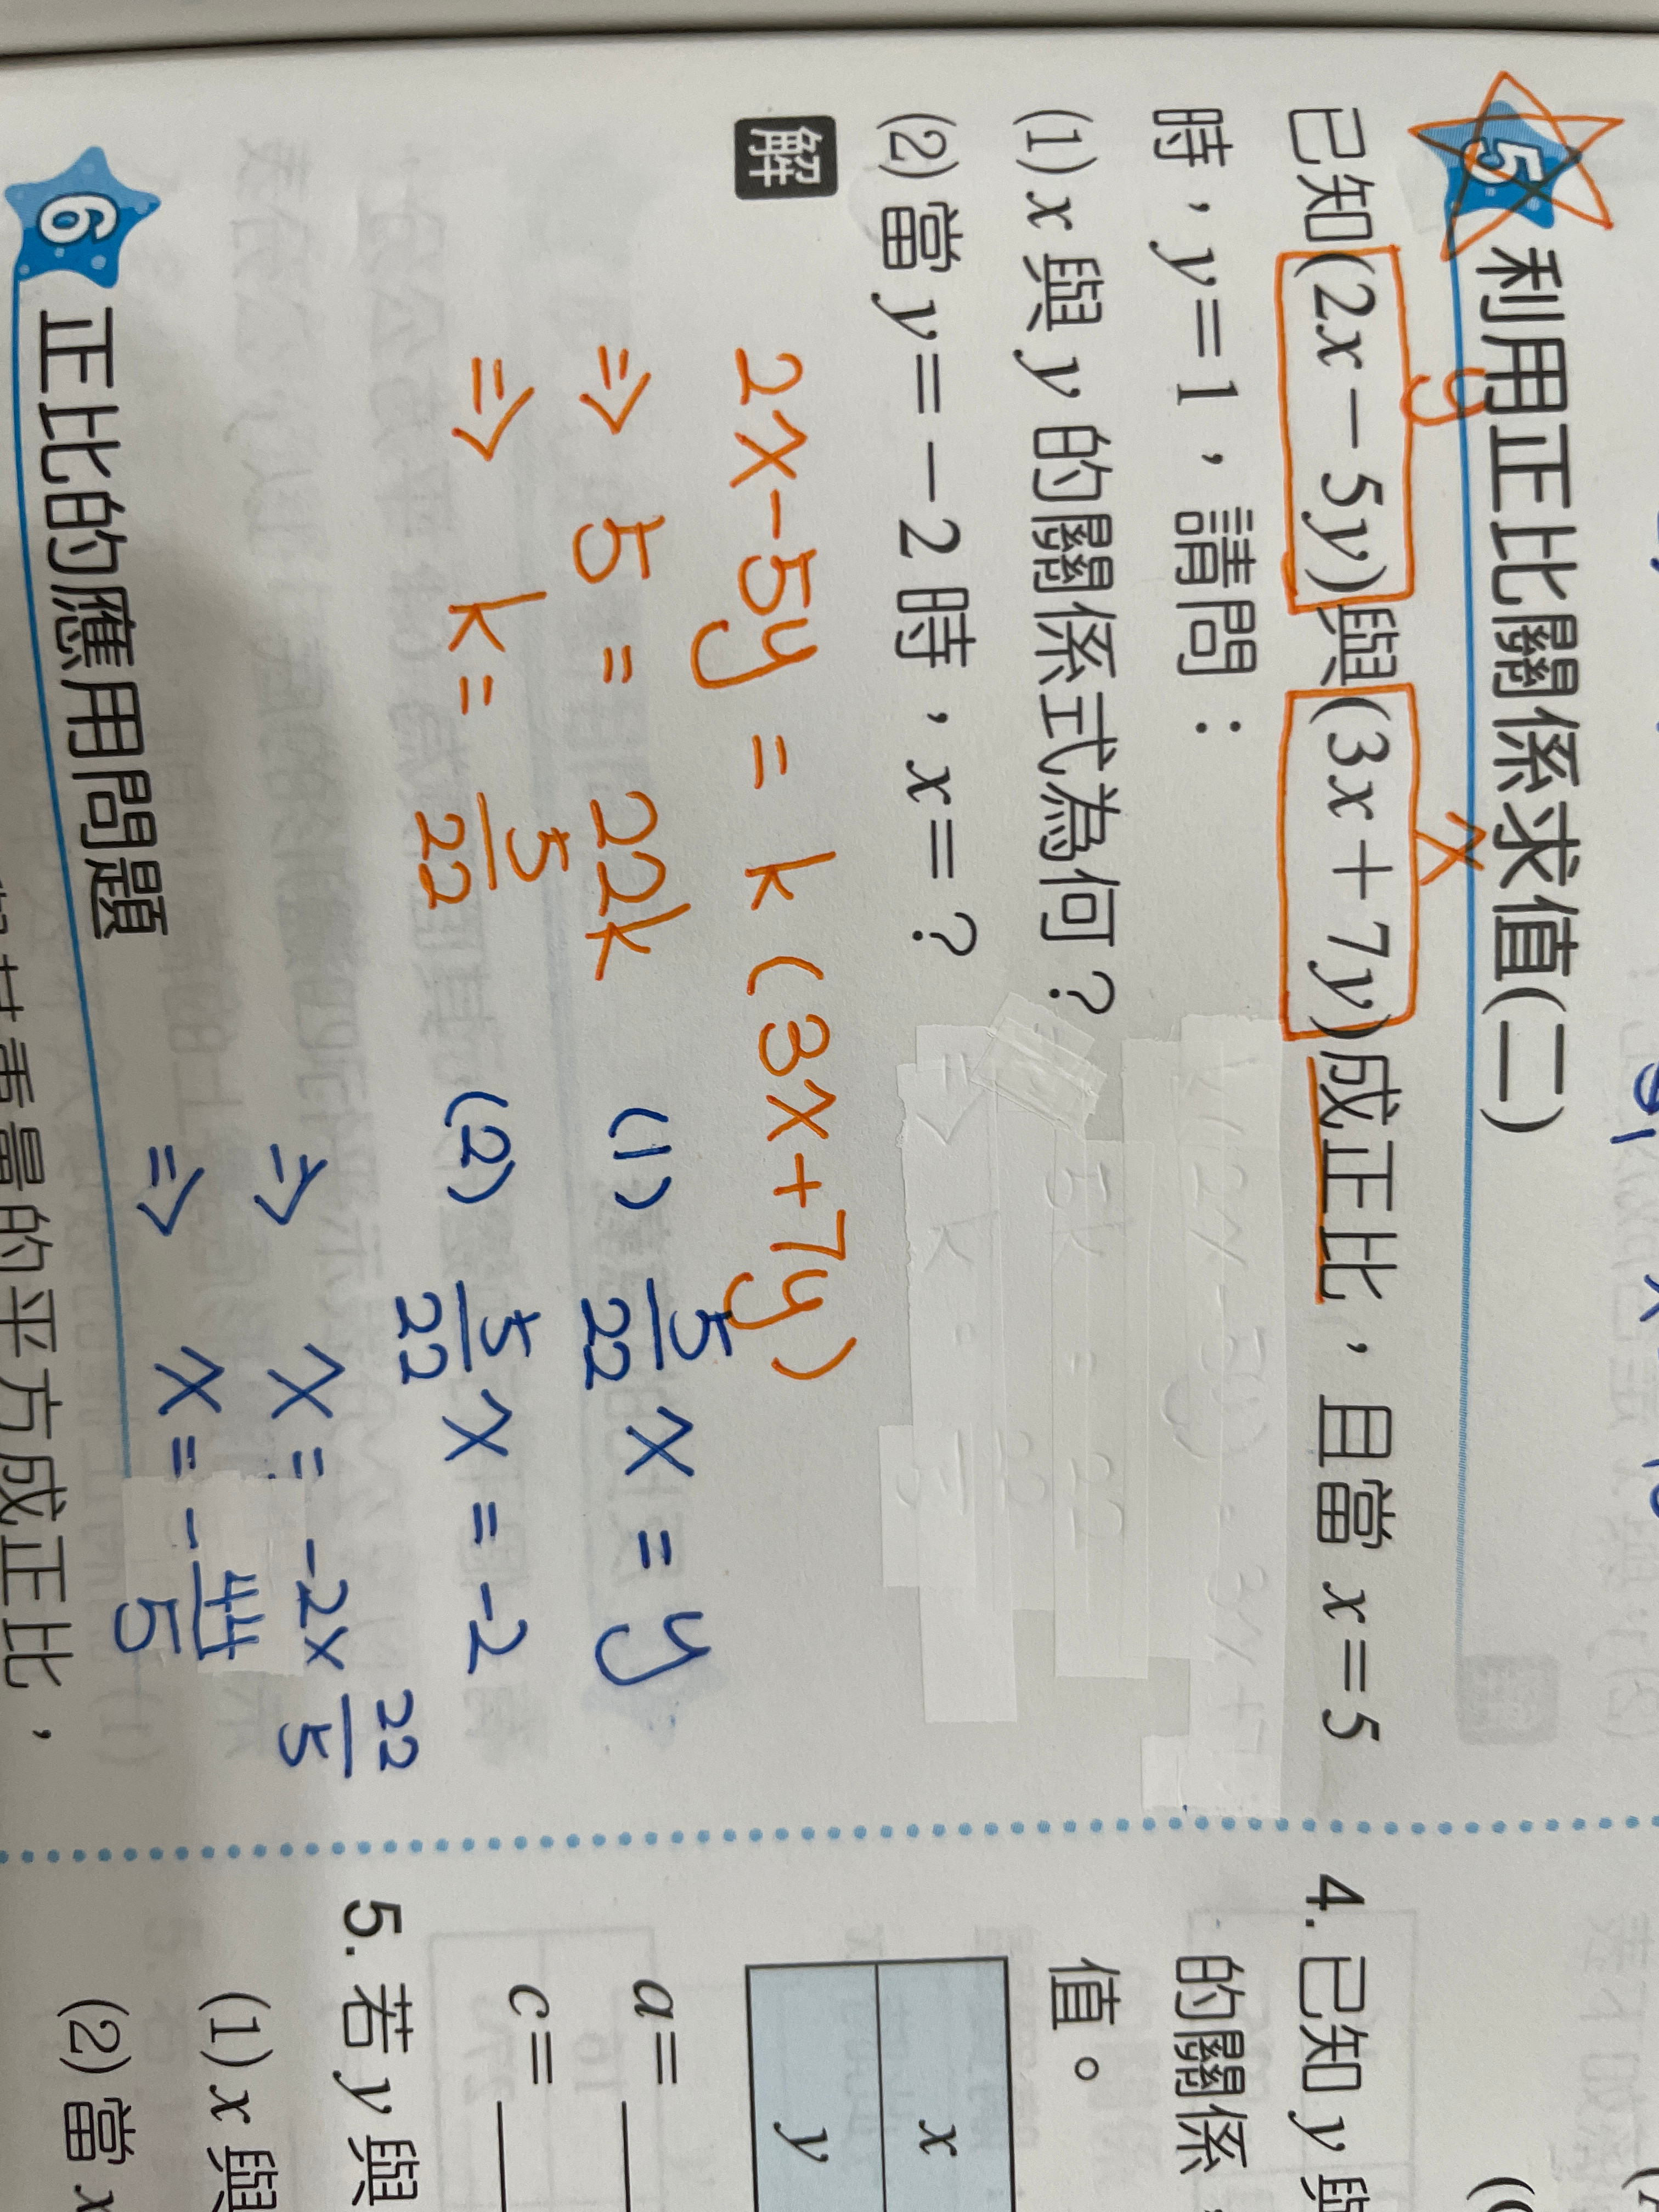 5 利用正比關係求值(二)
y
x
已知(2x－5y)與(3x＋7y)成正比，且當 x＝5
時，y＝1，請問：
(1) x 與 y 的關係式為何？
(2) 當 y＝－2 時，x＝？
解
2x-5y = k (3x+7y)
⇒ 5 = 22k
⇒ k= 5/22
(1) 5/22 x = y
(2) 5/22 x = -2
⇒ x = -2x 22/5
⇒ x = - 44/5
6 正比的應用問題
量的平方成正比，
4. 已知 y 與
的關係
值。
x
y
a＝
c＝
5. 若 y 與
(1) x 與
(2) 當 x